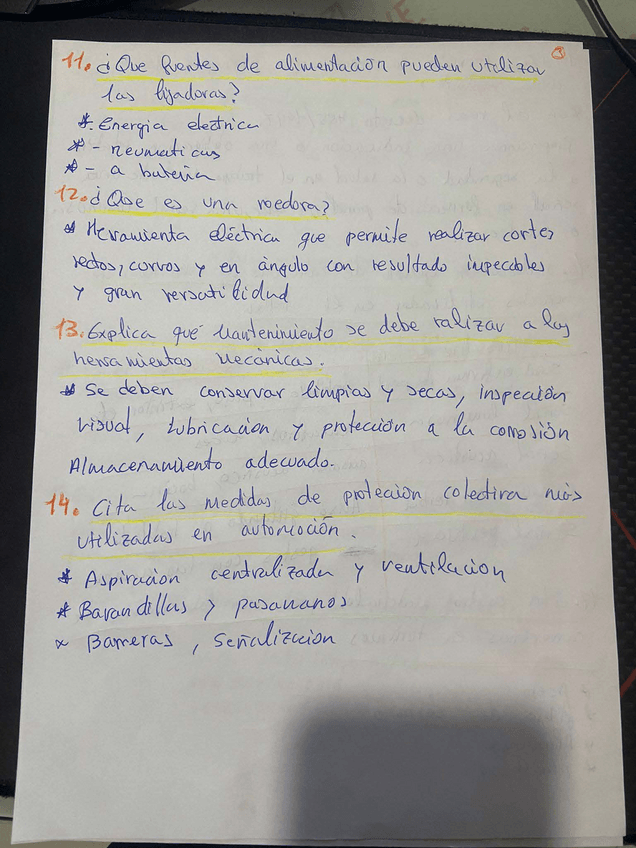 3
11. ¿Que fuentes de alimentación pueden utilizar
las lijadoras?
*. Energia electrica
* - neumaticas
* - a bateria
12. ¿Que es una roedora?
* Herramienta eléctrica que permite realizar cortes
rectos, curvos y en ángulo con resultado impecables
y gran versatilidad
13. Explica qué Mantenimiento se debe ralizar a las
herramientas mecánicas.
* Se deben conservar limpias y secas, inspección
visual, lubricacion y protección a la corrosión
Almacenamiento adecuado.
14. Cita las medidas de proteción colectiva más
utilizadas en automoción.
* Aspiracion centralizada y ventilacion
* Barandillas y pasamanos
* Barreras, señalizacion